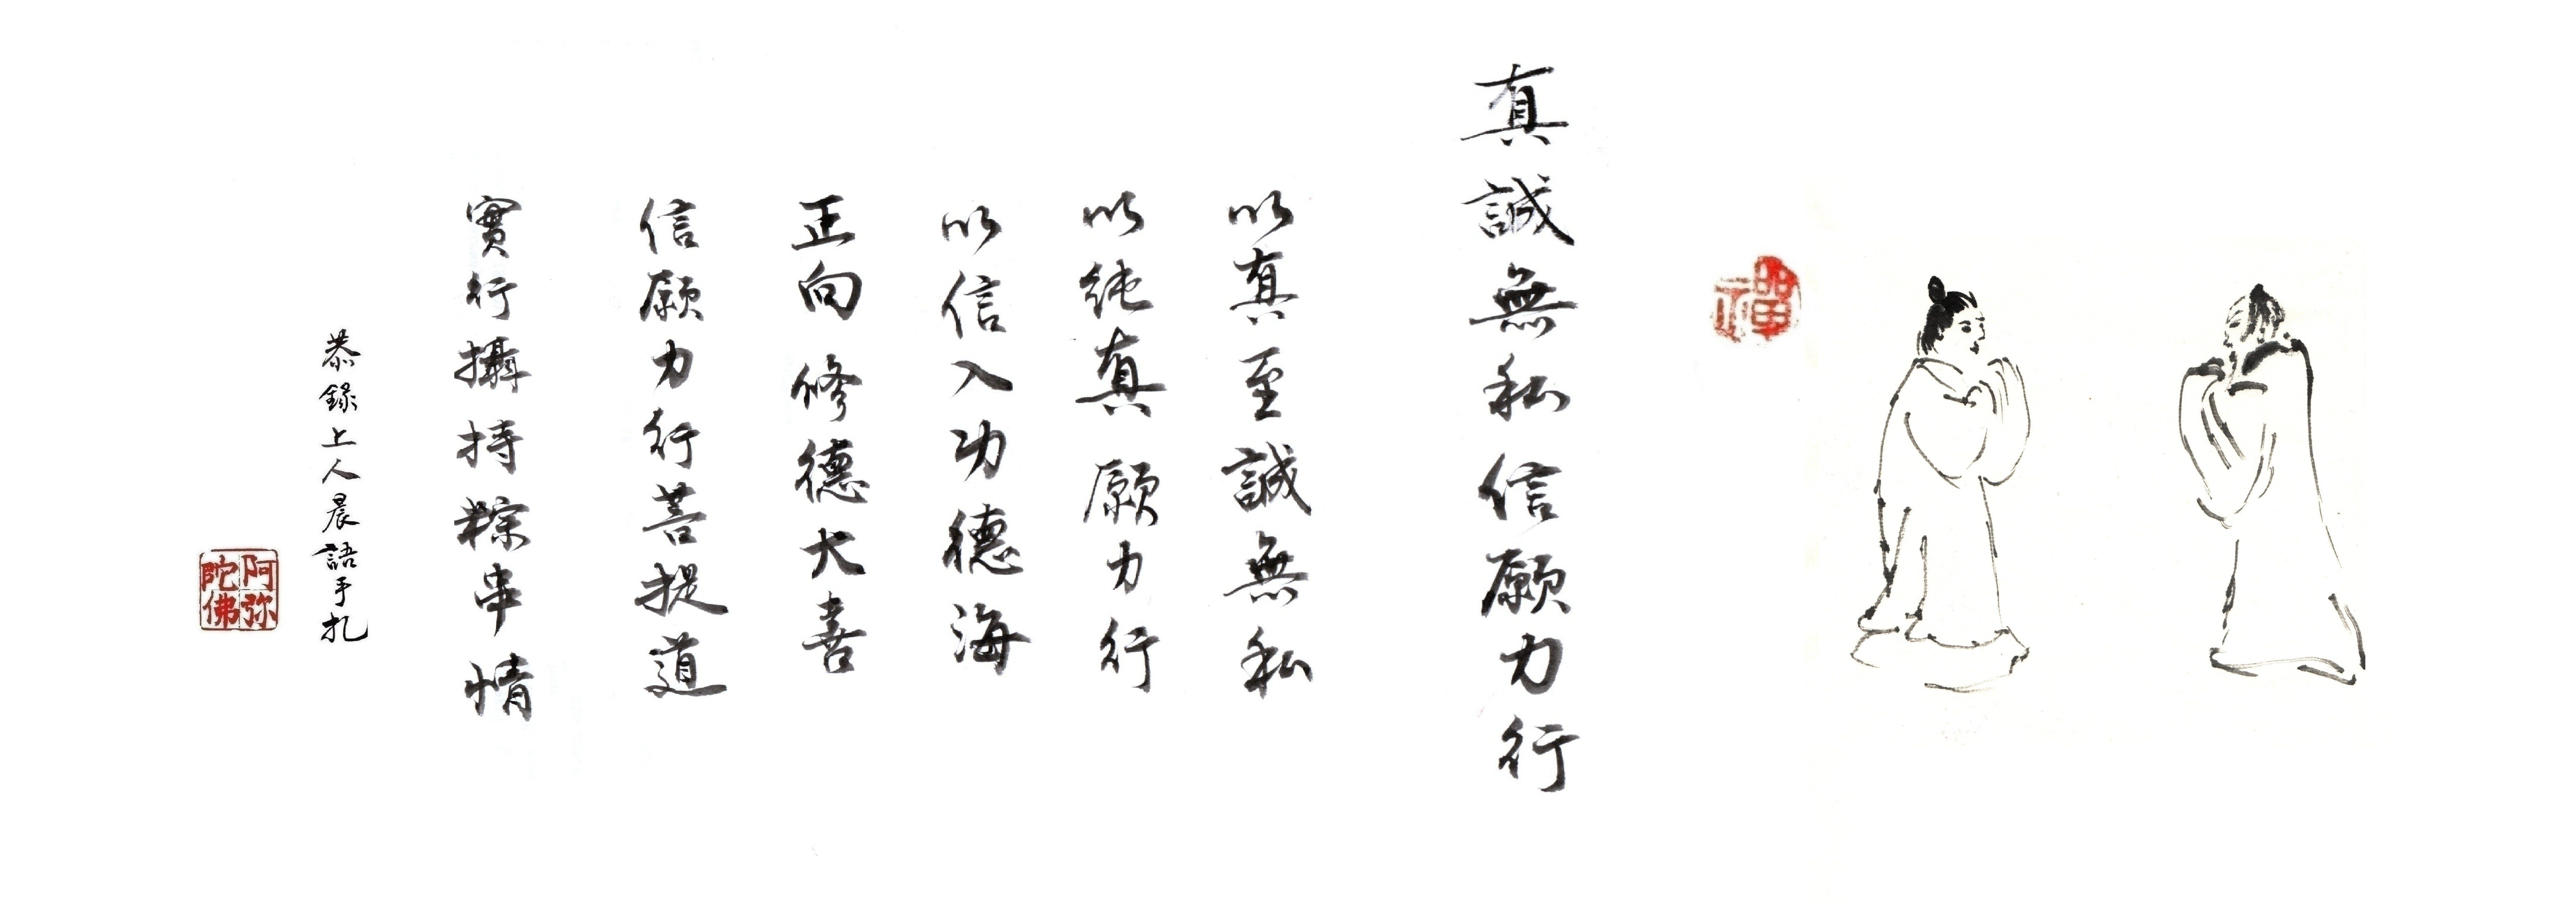 禪
真誠無私信願力行
以真至誠無私
以純真願力行
以信入功德海
正向修德大喜
信願力行菩提道
實行攝持粽串情
恭錄上人晨語手札
阿弥陀佛